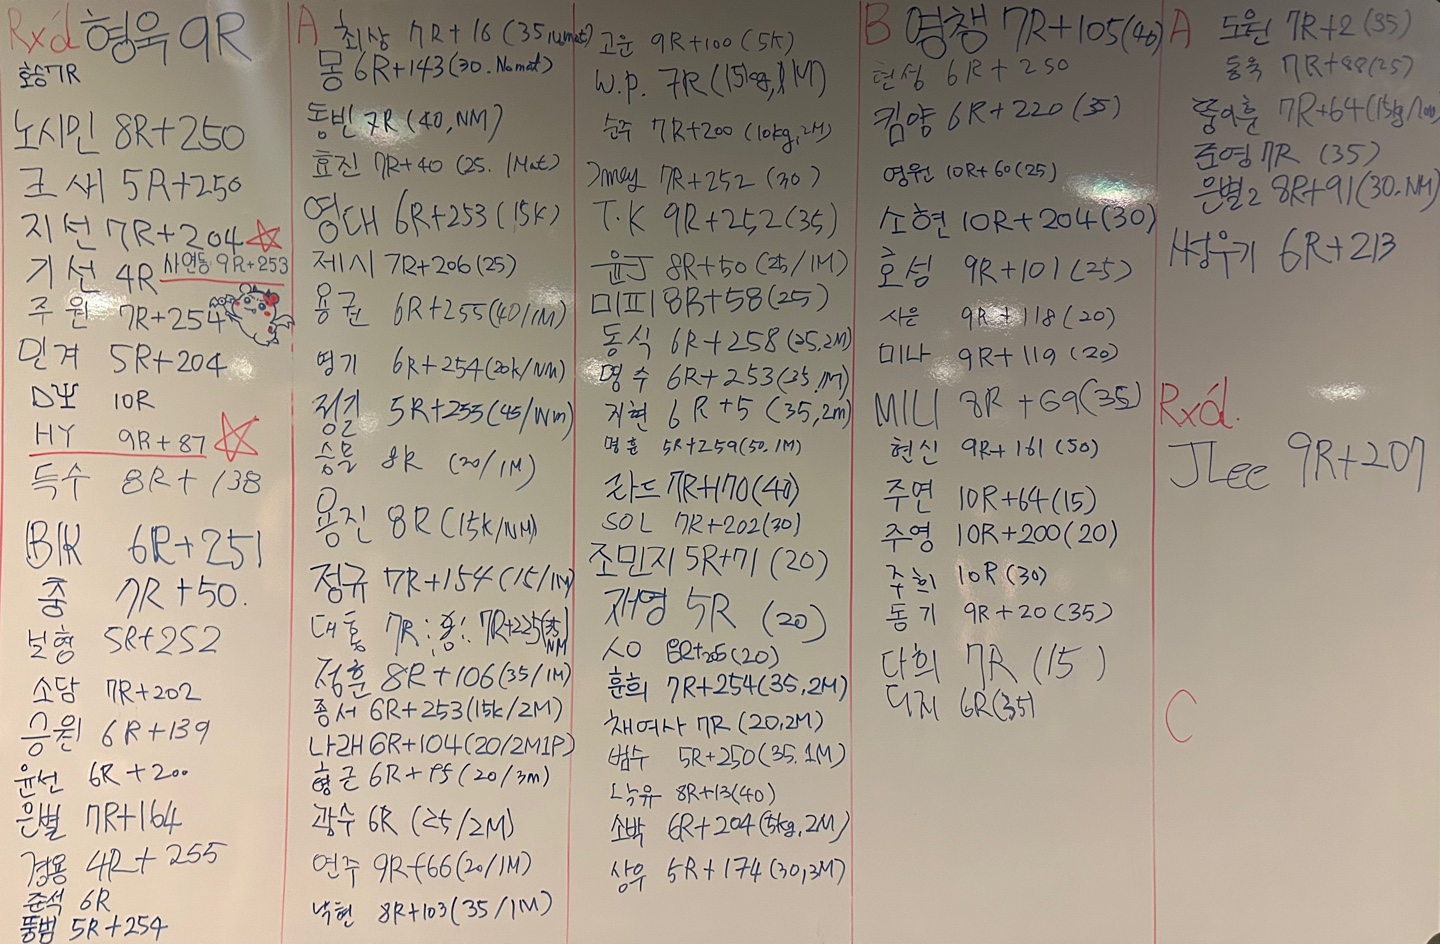 Rx'd 형욱 9R
호승 7R
노시민 8R+250
코새 5R+250
지선 7R+204
사연동 9R+253
기선 4R
주원 7R+254
민계 5R+204
DΨ 10R
HY 9R+87
득수 8R+138
BK 6R+251
충 7R+50.
보형 5R+252
소담 7R+202
승원 6R+139
윤선 6R+200
은별 7R+164
경용 4R+255
준석 6R
뚱범 5R+254
A
최상 7R+16 (35
몽 6R+143(30.Nomat)
동빈 7R (40,NM)
효진 7R+40 (25. 1Mat)
영대 6R+253 (15K)
제시 7R+206(25)
용권 6R+255(40/1M)
영기 6R+254(20k/NM)
정길 5R+255(45/Nm)
승률 8R (20/1M)
용진 8R(15k/NM)
정규 7R+154(15/1M)
대홍 7R 7R+225
NM
정훈 8R+106(35/1M)
종서 6R+253(15k/2M)
나래 6R+104(20/2M1P)
형근 6R+95(20/3m)
광수 6R (25/2M)
연주 9R+66(20/1M)
낙현 8R+103(35/1M)
고운 9R+100 (5K)
W.P. 7R (15kg,1M)
순주 7R+200 (10kg,2M)
Jmey 7R+252 (30)
T.K 9R+252(35)
윤J 8R+50(25/1M)
미피 8R+58(25)
동식 6R+258(25.2M)
명수 6R+253(35.1M)
지현 6R+5 (35,2m)
명훈 5R+259(50.1M)
라드 7R+170(40)
SOL 7R+202(30)
조민지 5R+71 (20)
재영 5R (20)
(20)
훈희 7R+254(35,2M)
채여사 7R (20,2M)
범수 5R+250(35.1M)
8R+13(40)
소박 6R+204(15kg,2M)
상우 5R+174(30,3M)
B 영챙 7R+105(40)
현성 6R+250
킴양 6R+220 (35)
영원 10R+60(25)
소현 10R+204(30)
호성 9R+101(25)
사은 9R+118(20)
미나 9R+119 (20)
MILI 8R+69(35)
현신 9R+161 (50)
주연 10R+64(15)
주영 10R+200(20)
주희 10R(30)
동기 9R+20(35)
다희 7R (15)
디지 6R(35)
A 도원 7R+2(35)
동욱 7R+88(25)
7R+64(15kg/
준영 7R (35)
은별2 8R+91(30.NM)
6R+213
Rx'd.
JLee 9R+207
C